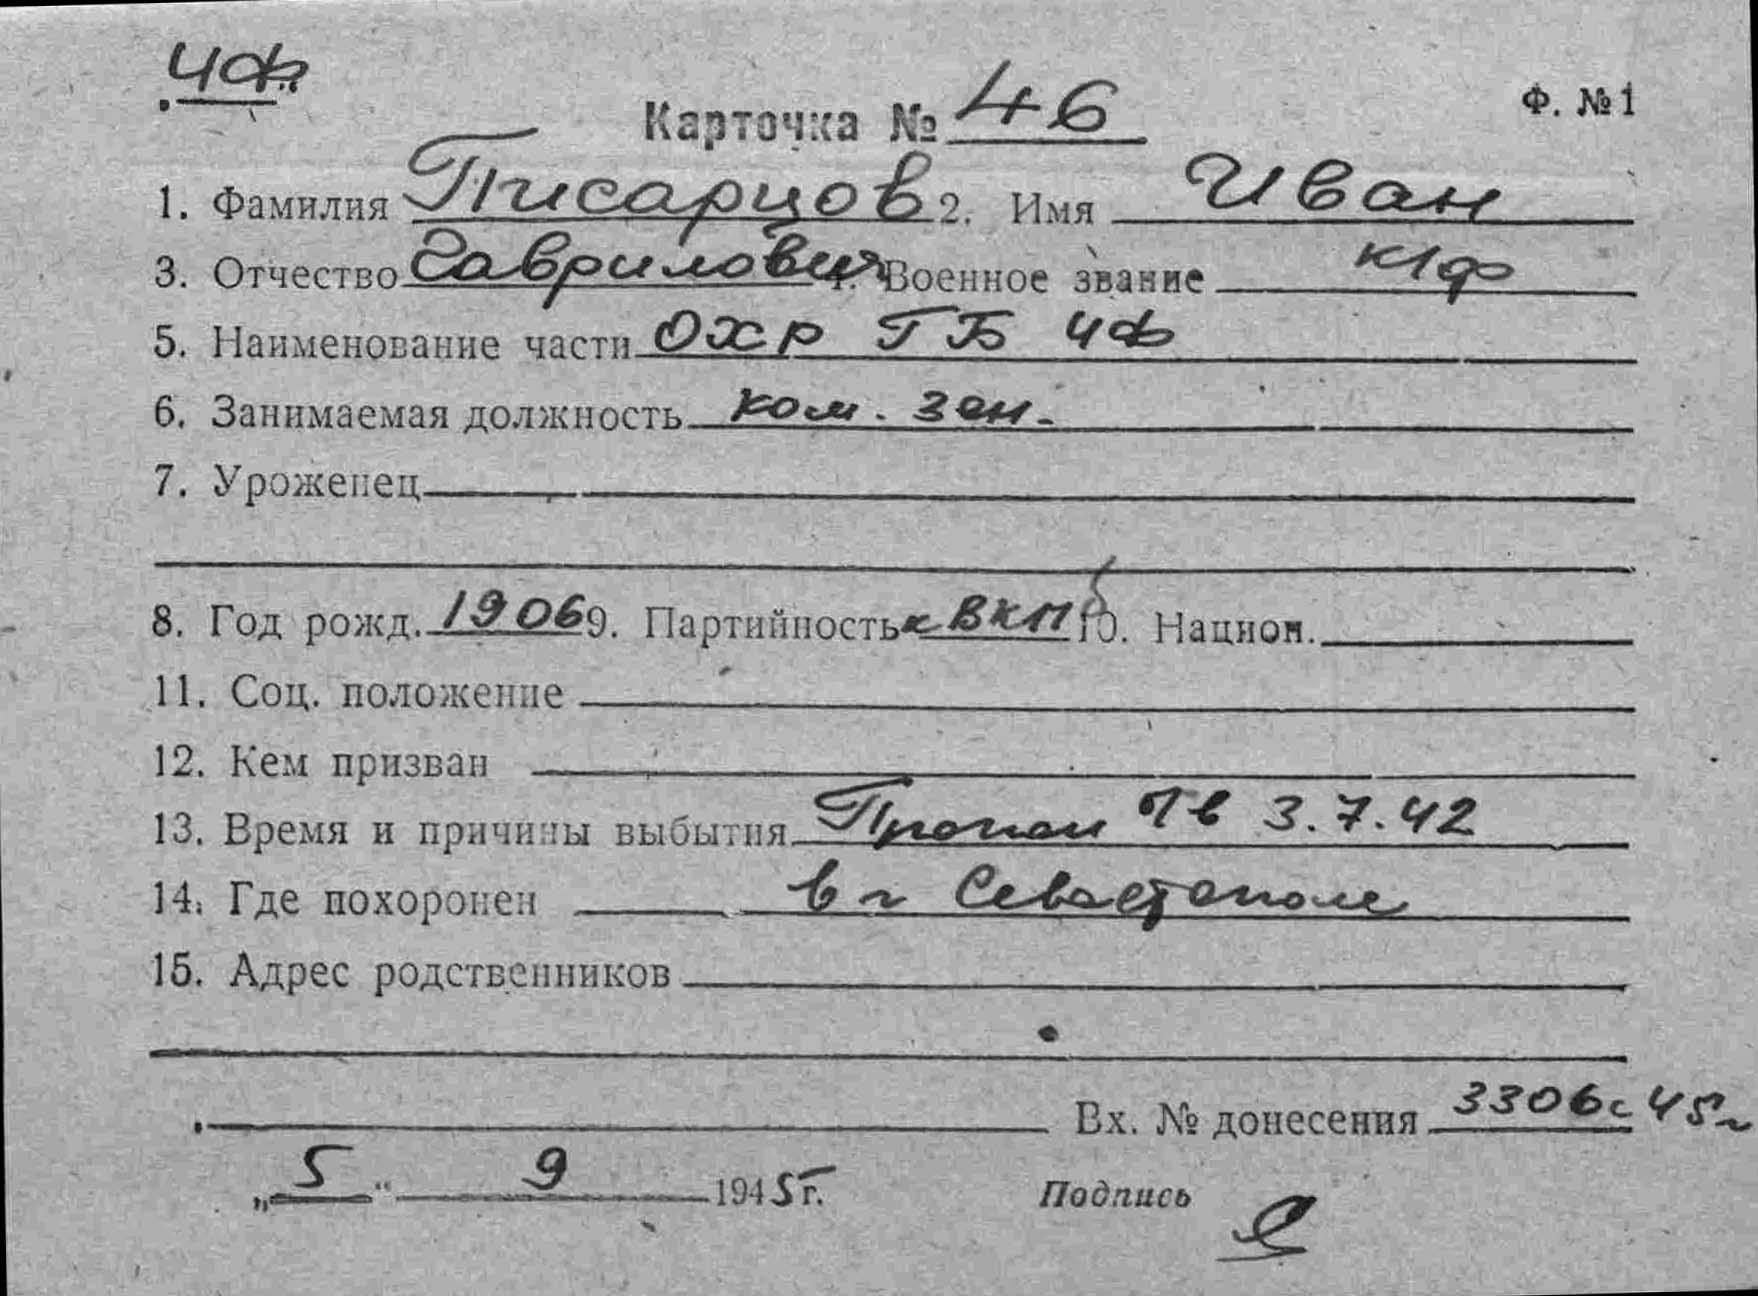 ЧФ
Карточка № 46
Ф. № 1
1. Фамилия Писарцов 2. Имя Иван
3. Отчество Гаврилович 4. Военное звание к/ф
5. Наименование части ОХР ГБ ЧФ
6. Занимаемая должность ком. зен.
7. Уроженец
8. Год рожд. 1906 9. Партийность к ВКПб 10. Национ.
11. Соц. положение
12. Кем призван
13. Время и причины выбытия Пропал 3.7.42
14. Где похоронен в г Севастополе
15. Адрес родственников
Вх. № донесения 3306с 45г
„5“ 9 1945 г.
Подпись